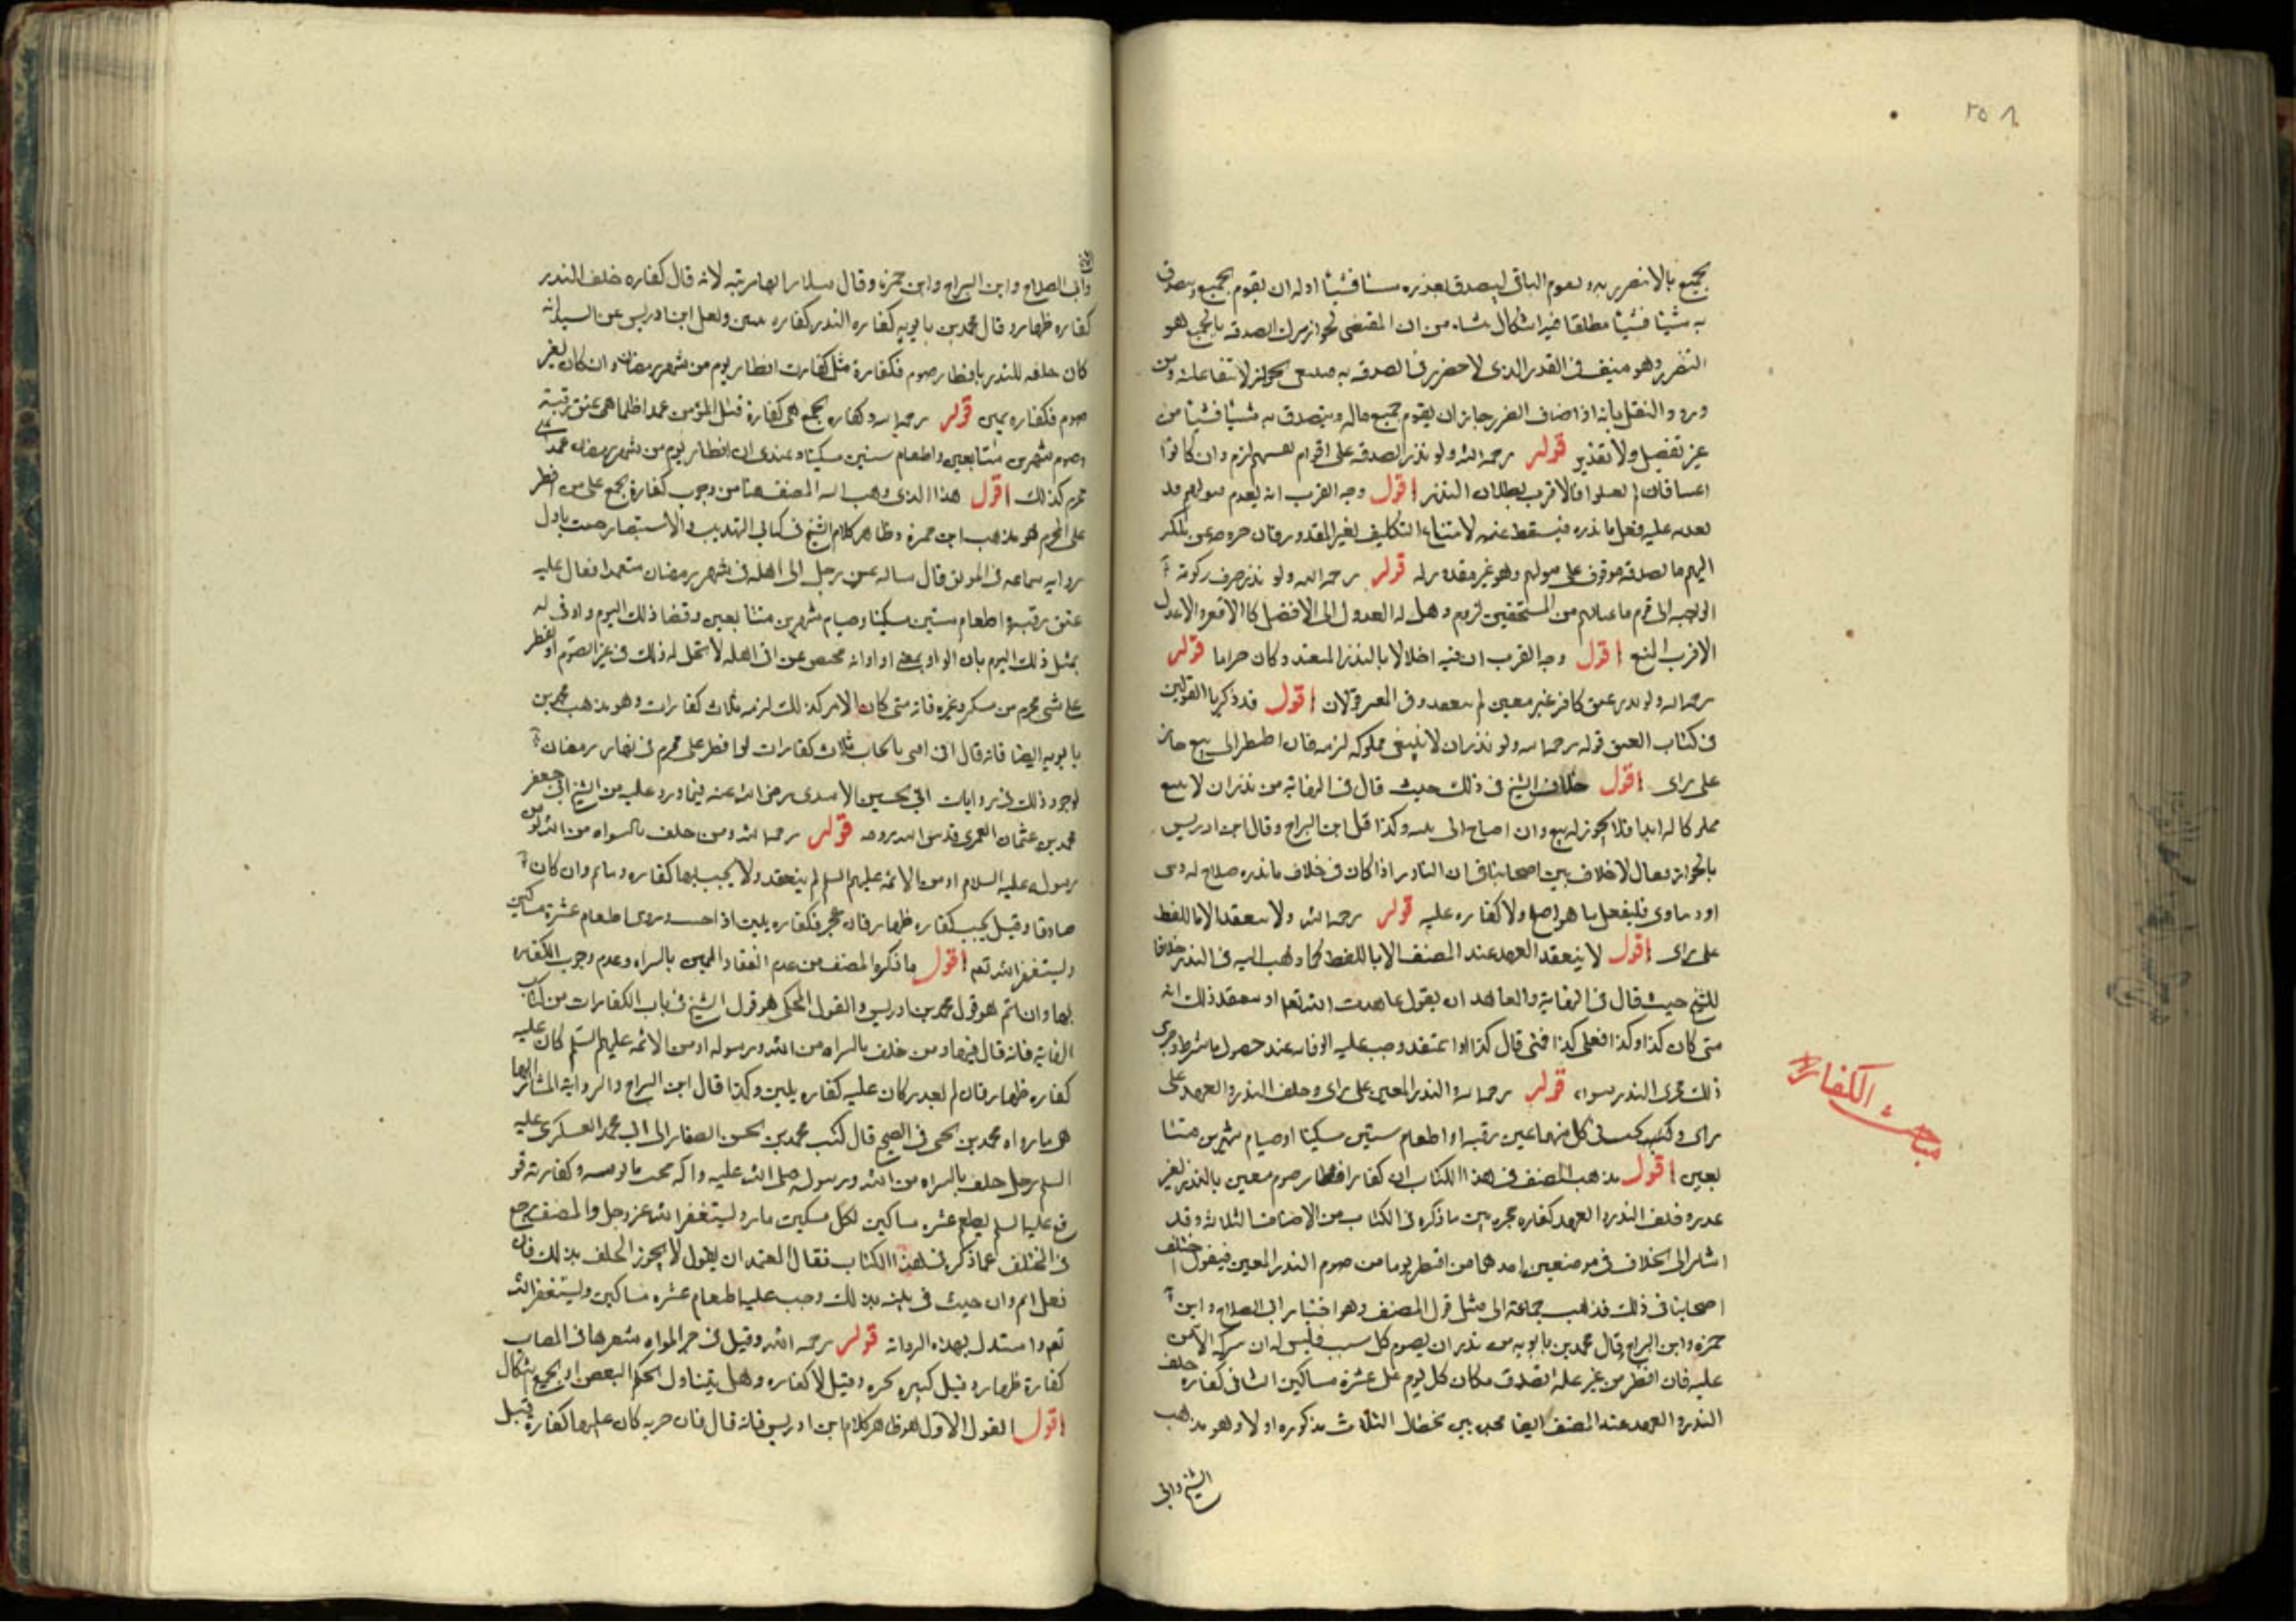 ٢٥٨
بجميع بالانضرر به ولعوم الباقى ليصدق بعذره شيئا فشيئا او له ان يقوم الجميع ويتصدق
به شيئا فشيئا مطلقا فيه اشكال ينشاء من ان المقتضى لجواز ترك الصدقه بالجميع هو
التضرر وهو منيف فى القدر الذى لا ضرر فى الصدقه به فلا يجوز لانتفاء علته ومن
ورود النقل بانه اذا خاف الضرر جاز ان يقوم جميع ماله ويتصدق به شيئا فشيئا من
غير تفصيل ولا تقدير قوله رحمه الله ولو نذر الصدقه على اقوام بعينهم لزم وان كانوا
اغنيا فان لم يقبلوا فالاقرب بطلان النذر اقول وجه القرب انه بعدم قبولهم قد
تعذر عليه فعل ما نذره فيسقط عنه لامتناع التكليف بغير المقدور فان خروجه عن ملكه
اليهم بالصدقه موقوف على قبولهم وهو غير مقدور له قوله رحمه الله ولو نذر صرف زكوته
الواجبه الى قوم باعيانهم من المستحقين لزم وهل له العدول الى الافضل كالافقر والاعدل
الاقرب المنع اقول وجه القرب ان فيه اخلالا بالنذر المنعقد وكان حراما قوله
رحمه الله ولو نذر عتق كافر غير معين لم ينعقد وفى المعين قولان اقول قد ذكرنا القولين
فى كتاب العتق قوله رحمه الله ولو نذر ان لا يبيع مملوكه لزمه فان اضطر الى بيعه جاز
على راى اقول خلاف الشيخ فى ذلك حيث قال فى النهاية من نذر ان لا يبيع
مملوكا له ابدا فلا يجوز له بيعه وان احتاج الى ثمنه وكذا قال ابن البراج وقال ابن ادريس
بالجواز وقال لا خلاف بين اصحابنا فى ان الناذر اذا كان فى خلاف ما نذره صلاح له دينى
او دنياوى فليفعل ما هو اصلح ولا كفاره عليه قوله رحمه الله ولا ينعقد الا باللفظ
على راى اقول لا ينعقد العهد عند المصنف الا باللفظ كما ذهب اليه فى النذر خلافا
للشيخ حيث قال فى النهاية والعاهد ان يقول عاهدت الله تعالى او يعتقد ذلك انه
متى كان كذا وكذا فعلى كذا فمتى قال كذا او اعتقد وجب عليه الوفاء عند حصول ما شرط وجرى
ذلك مجرى النذر سواء قوله رحمه الله والنذر المعين على راى وخلف النذر والعهد على
راى وكتب كسبى كل منهما عتق رقبه او اطعام ستين مسكينا او صيام شهرين متتا
بعين اقول مذهب المصنف فى هذا الكتاب ان كفارة افطار صوم معين بالنذر لغير
عذر وخلف النذر والعهد كفاره مخيره بين ما ذكره فى الكتاب من الاصناف الثلاثه وقد
اشار الى الخلاف فى موضعين احدهما من افطر يوما من صوم النذر المعين فيقول اختلف
اصحابنا فى ذلك فذهب جماعة الى مثل قول المصنف وهو اختيار ابى الصلاح وابن
حمزه وابن البراج وقال محمد بن بابويه من نذر ان يصوم كل سبت فليس له ان يتركه الا من
عليه فان افطر من غير علة تصدق مكان كل يوم على عشرة مساكين الثانى كفاره خلف
النذر والعهد عند المصنف ايضا مخير بين خصال الثلاث مذكوره اولا وهو مذهب
الشيخ وابى
مباحث الكفارة
وابى الصلاح وابن البراج وابن حمزه وقال سلار انها مرتبه لانه قال كفاره خلف النذر
كفاره ظهار وقال محمد بن بابويه كفاره النذر كفاره يمين ونقل ابن ادريس عن السيد انه
كان خلفه للنذر بافطار صوم فكفارة مثل كفارت افطار يوم من شهر رمضان وان كان لغير
صوم فكفاره يمين قوله رحمه الله وكفاره الجمع هى كفارة قتل المؤمن عمدا ظلما هى عتق رقبة
وصوم شهرين متتابعين واطعام ستين مسكينا وعندى ان افطار يوم من شهر رمضان عمدا على
محرم كذلك اقول هذا الذى ذهب اليه المصنف هنا من وجوب كفارة الجمع على من افطر
على المحرم هو مذهب ابن حمزة وظاهر كلام الشيخ فى كتابى التهذيب والاستبصار حيث تاول
روايه سماعه فى الموثق قال سالته عمن رجل اتى اهله فى شهر رمضان متعمدا فقال عليه
عتق رقبه واطعام ستين مسكينا وصيام شهرين متتابعين وقضا ذلك اليوم وانى له
بمثل ذلك اليوم بان الواو بمعنى او او انه مختص عن اتى اهله لا تحل له ذلك فى غير الصوم او افطر
على شى محرم من مسكر وغيره فانه متى كان الامر كذلك لزمه ثلاث كفارات وهو مذهب محمد بن
بابويه ايضا فانه قال انى افتى بايجاب ثلاث كفارات لو افطر على محرم فى نهار رمضان
لوجود ذلك فى روايات ابى الحسين الاسدى رضى الله عنه فيما ورد عليه من الشيخ ابى جعفر
محمد بن عثمان العمرى قدس الله روحه قوله رحمه الله ومن حلف بالبراءه من الله او من
رسوله عليه السلام او من الائمه عليهم السلم لم ينعقد ولا يجب بها كفاره وياثم وان كان
صادقا وقيل يجب كفاره ظهار فان عجز فكفاره يمين اذا حنث وروى اطعام عشرة مساكين
وليستغفر الله تعم اقول ما ذكره المصنف من عدم انعقاد اليمين بالبراه وعدم وجوب الكفاره
بها وان ياثم هو قول محمد بن ادريس والقول المحكى هو قول الشيخ فى باب الكفارات من كتاب
النهاية فانه قال فيها ومن حلف بالبراه من الله ورسوله او من الائمه عليهم السلم كان عليه
كفاره ظهار فان لم يقدر كان عليه كفاره يمين وكذا قال ابن البراج والرواية المشار اليها
هى ما رواه محمد بن يحيى فى الصحيح قال كتب محمد بن الحسن الصفار الى ابى محمد العسكرى عليه
السلم رجل حلف بالبراه من الله ورسوله صلى الله عليه واله فحنث ما توبته وكفارته فو
قع عليه السلم يطعم عشره مساكين لكل مسكين مد وليستغفر الله عز وجل والمصنف رجع
فى المختلف عما ذكر فى هذا الكتاب فقال المعتمد ان يقول لا يجوز الحلف بذلك فان
فعل اثم وان حنث فى يمينه بذلك وجب عليه اطعام عشره مساكين وليستغفر الله
تعم واستدل بهذه الروايه قوله رحمه الله وقيل فى جز المراه شعرها فى المصاب
كفارة ظهار وقيل كبيره مخيره وقيل لا كفاره وهل يتناول الحكم البعض او الجميع اشكال
اقول القول الاول هو ظاهر كلام ابن ادريس فانه قال فان جزته كان عليها كفارة قتل